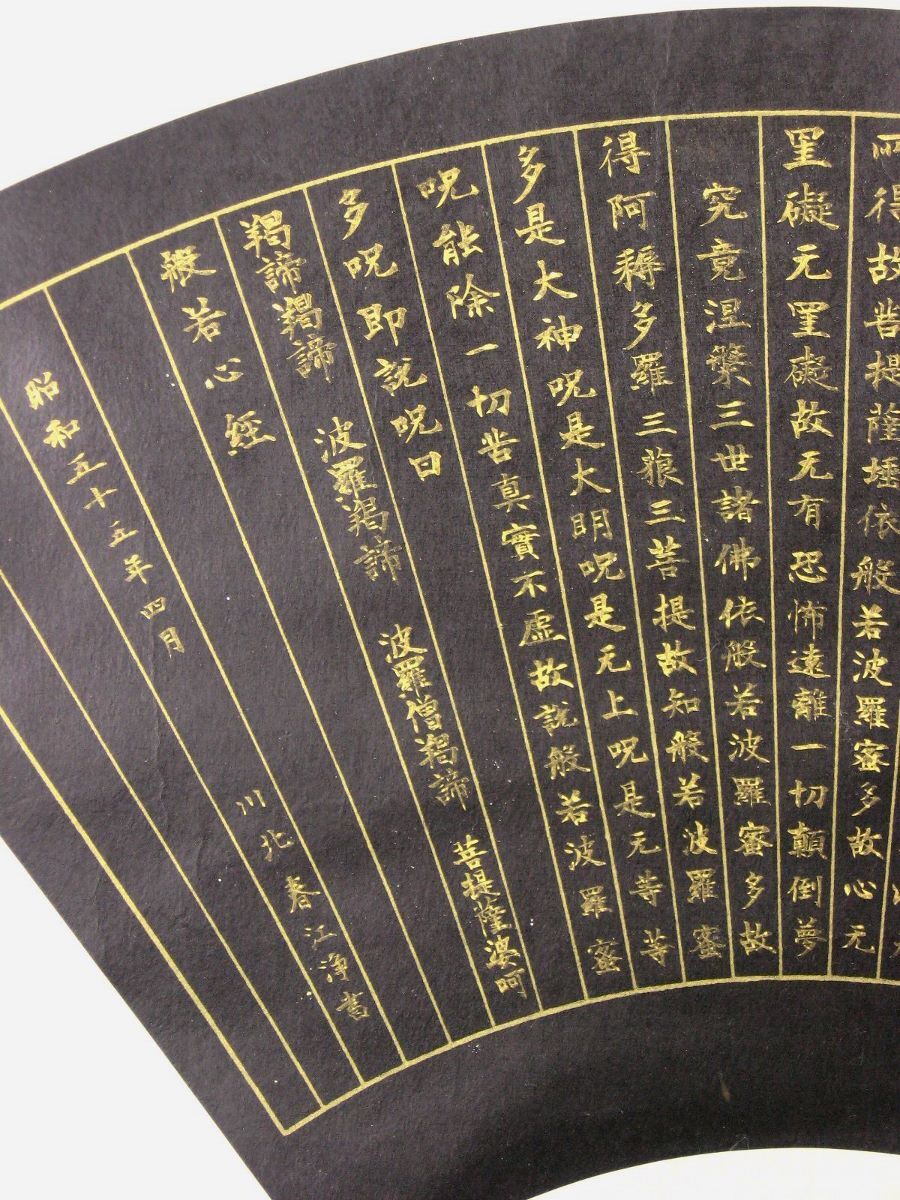 所得故菩提薩埵依般若波羅蜜多故心无
罣礙无罣礙故无有恐怖遠離一切顛倒夢
究竟涅槃三世諸佛依般若波羅蜜多故
得阿耨多羅三藐三菩提故知般若波羅蜜
多是大神呪是大明呪是无上呪是无等等
呪能除一切苦真實不虚故説般若波羅蜜
多呪即説呪曰
羯諦羯諦 波羅羯諦 波羅僧羯諦 菩提薩婆呵
般若心経
昭和五十五年四月 川北春江浄書